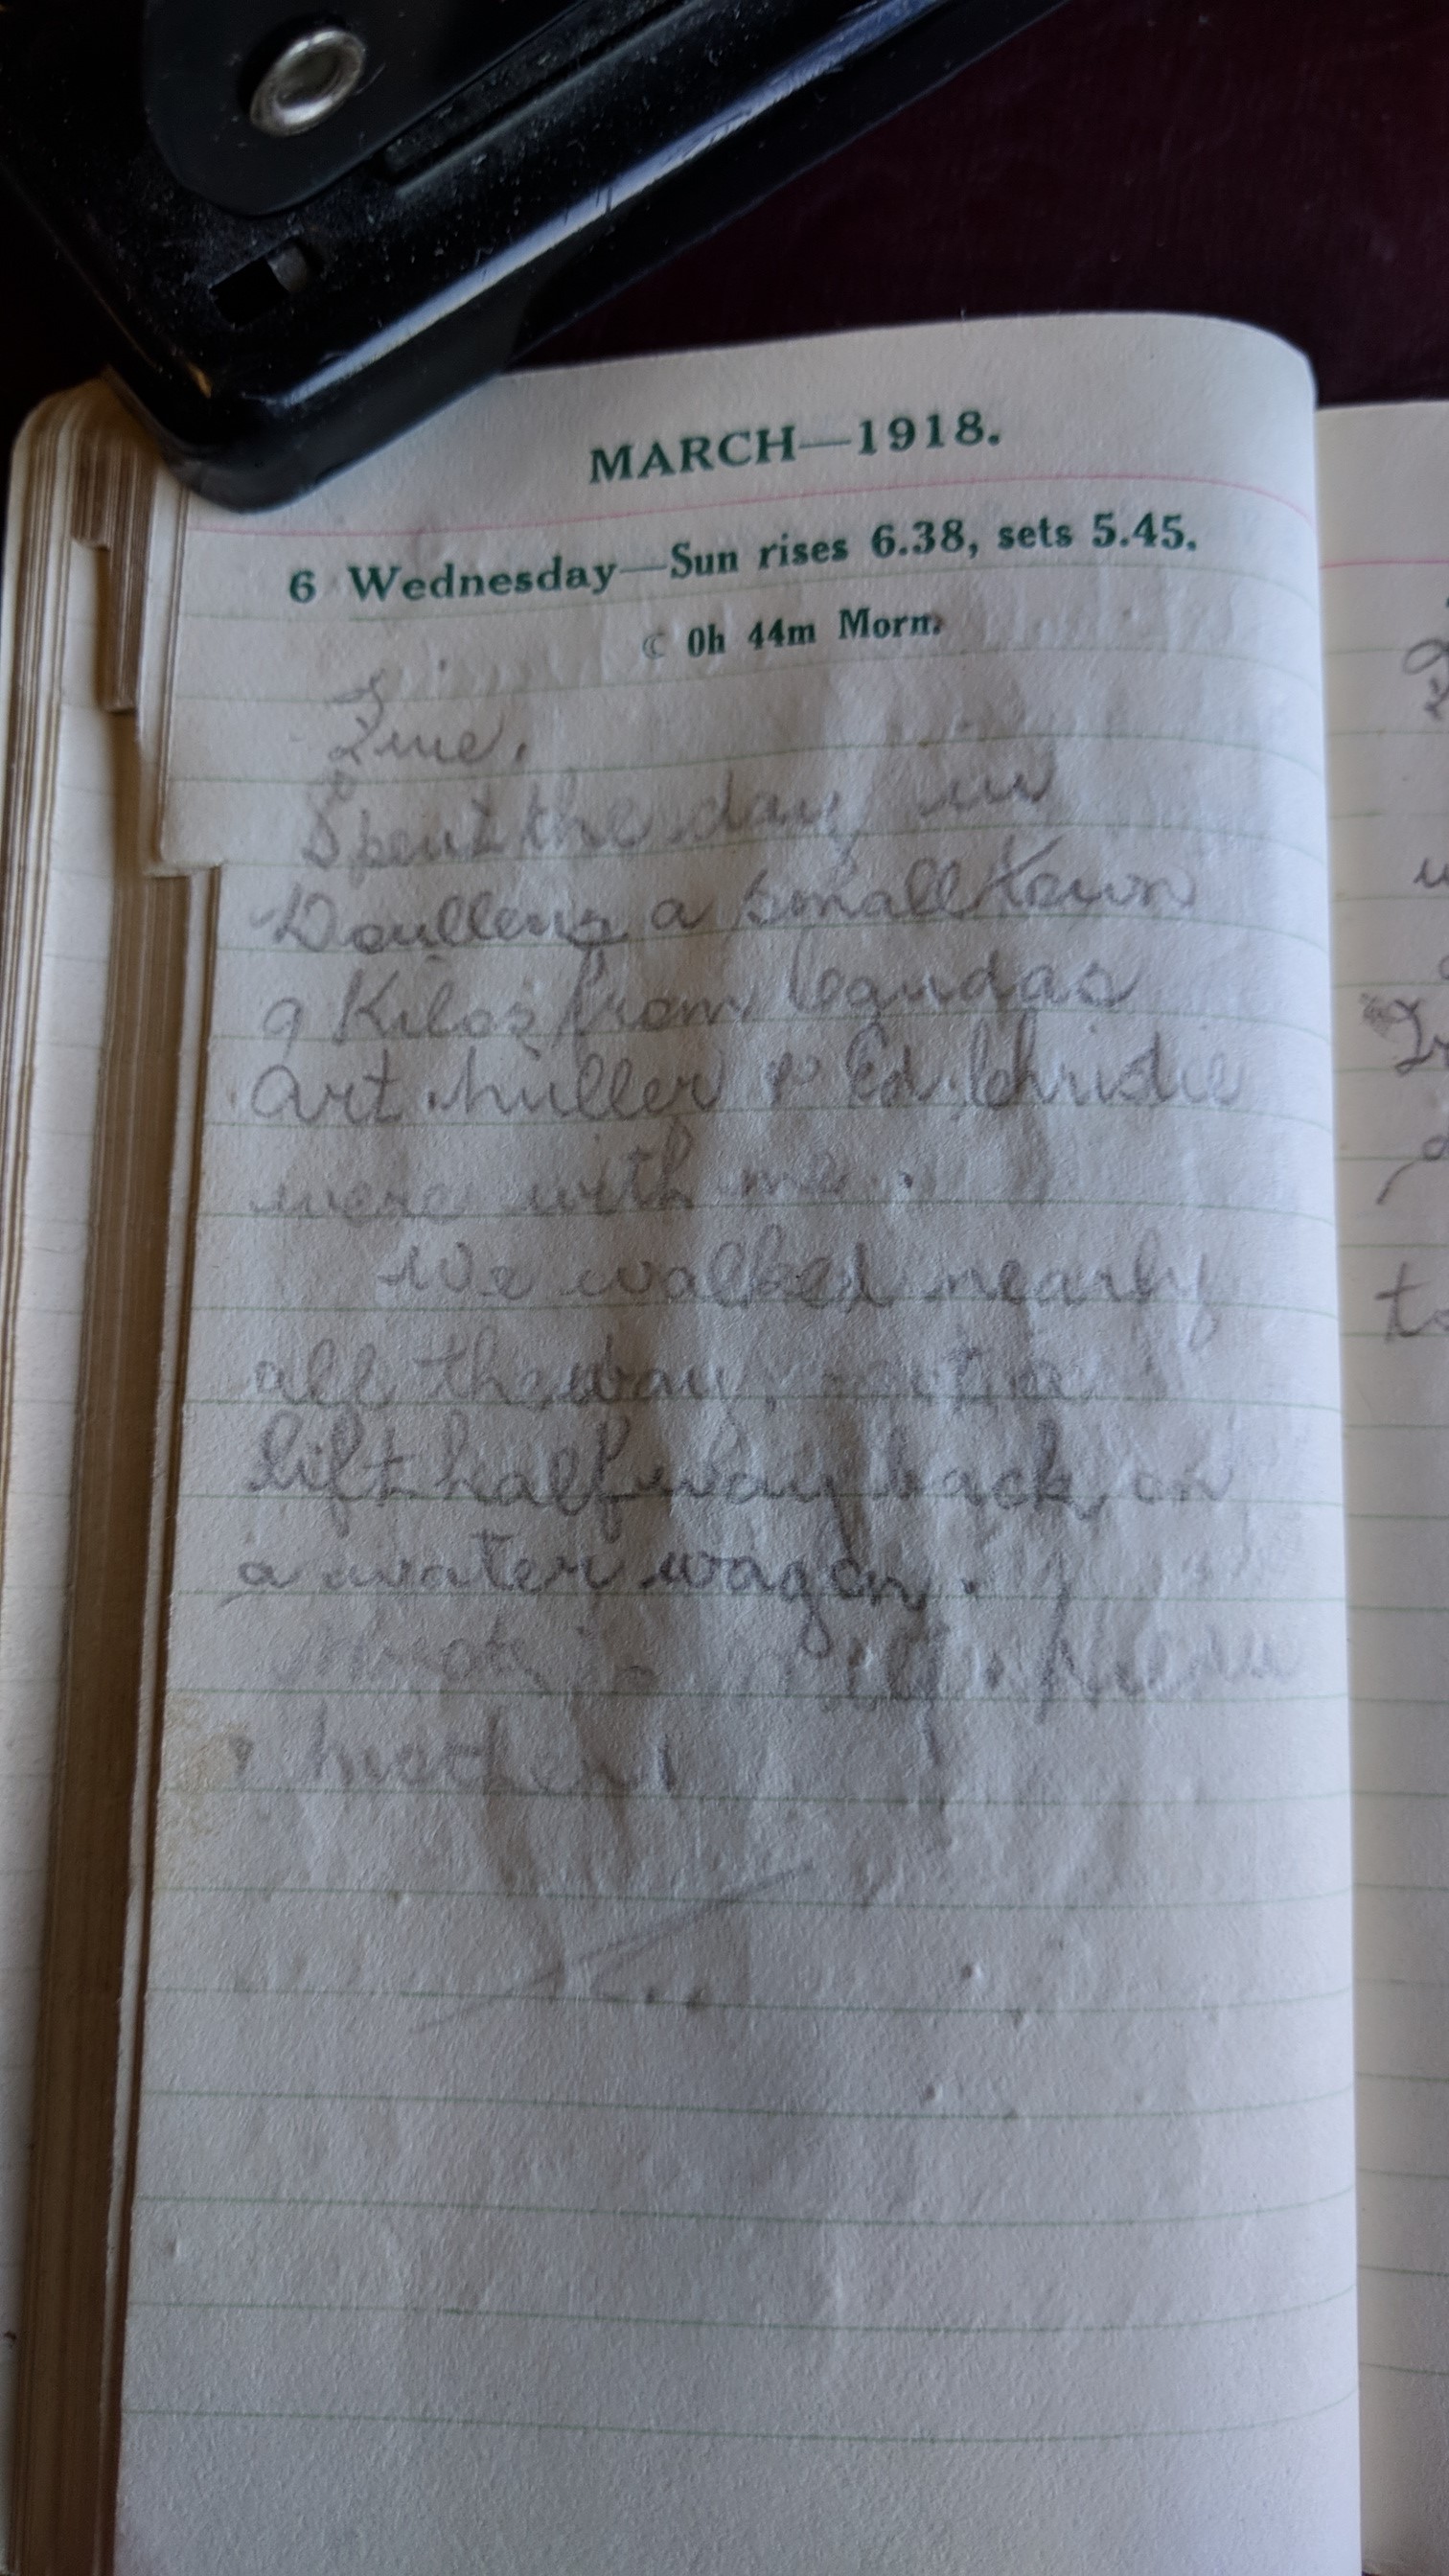 MARCH—1918.
6 Wednesday—Sun rises 6.38, sets 5.45.
☾ 0h 44m Morn.
Fine.
Spent the day in
Doullens a small town
9 Kilos from
Art Miller & Ed. Christie
were with me.
We walked nearly
all the way, got a
lift half way back on
a water wagon.